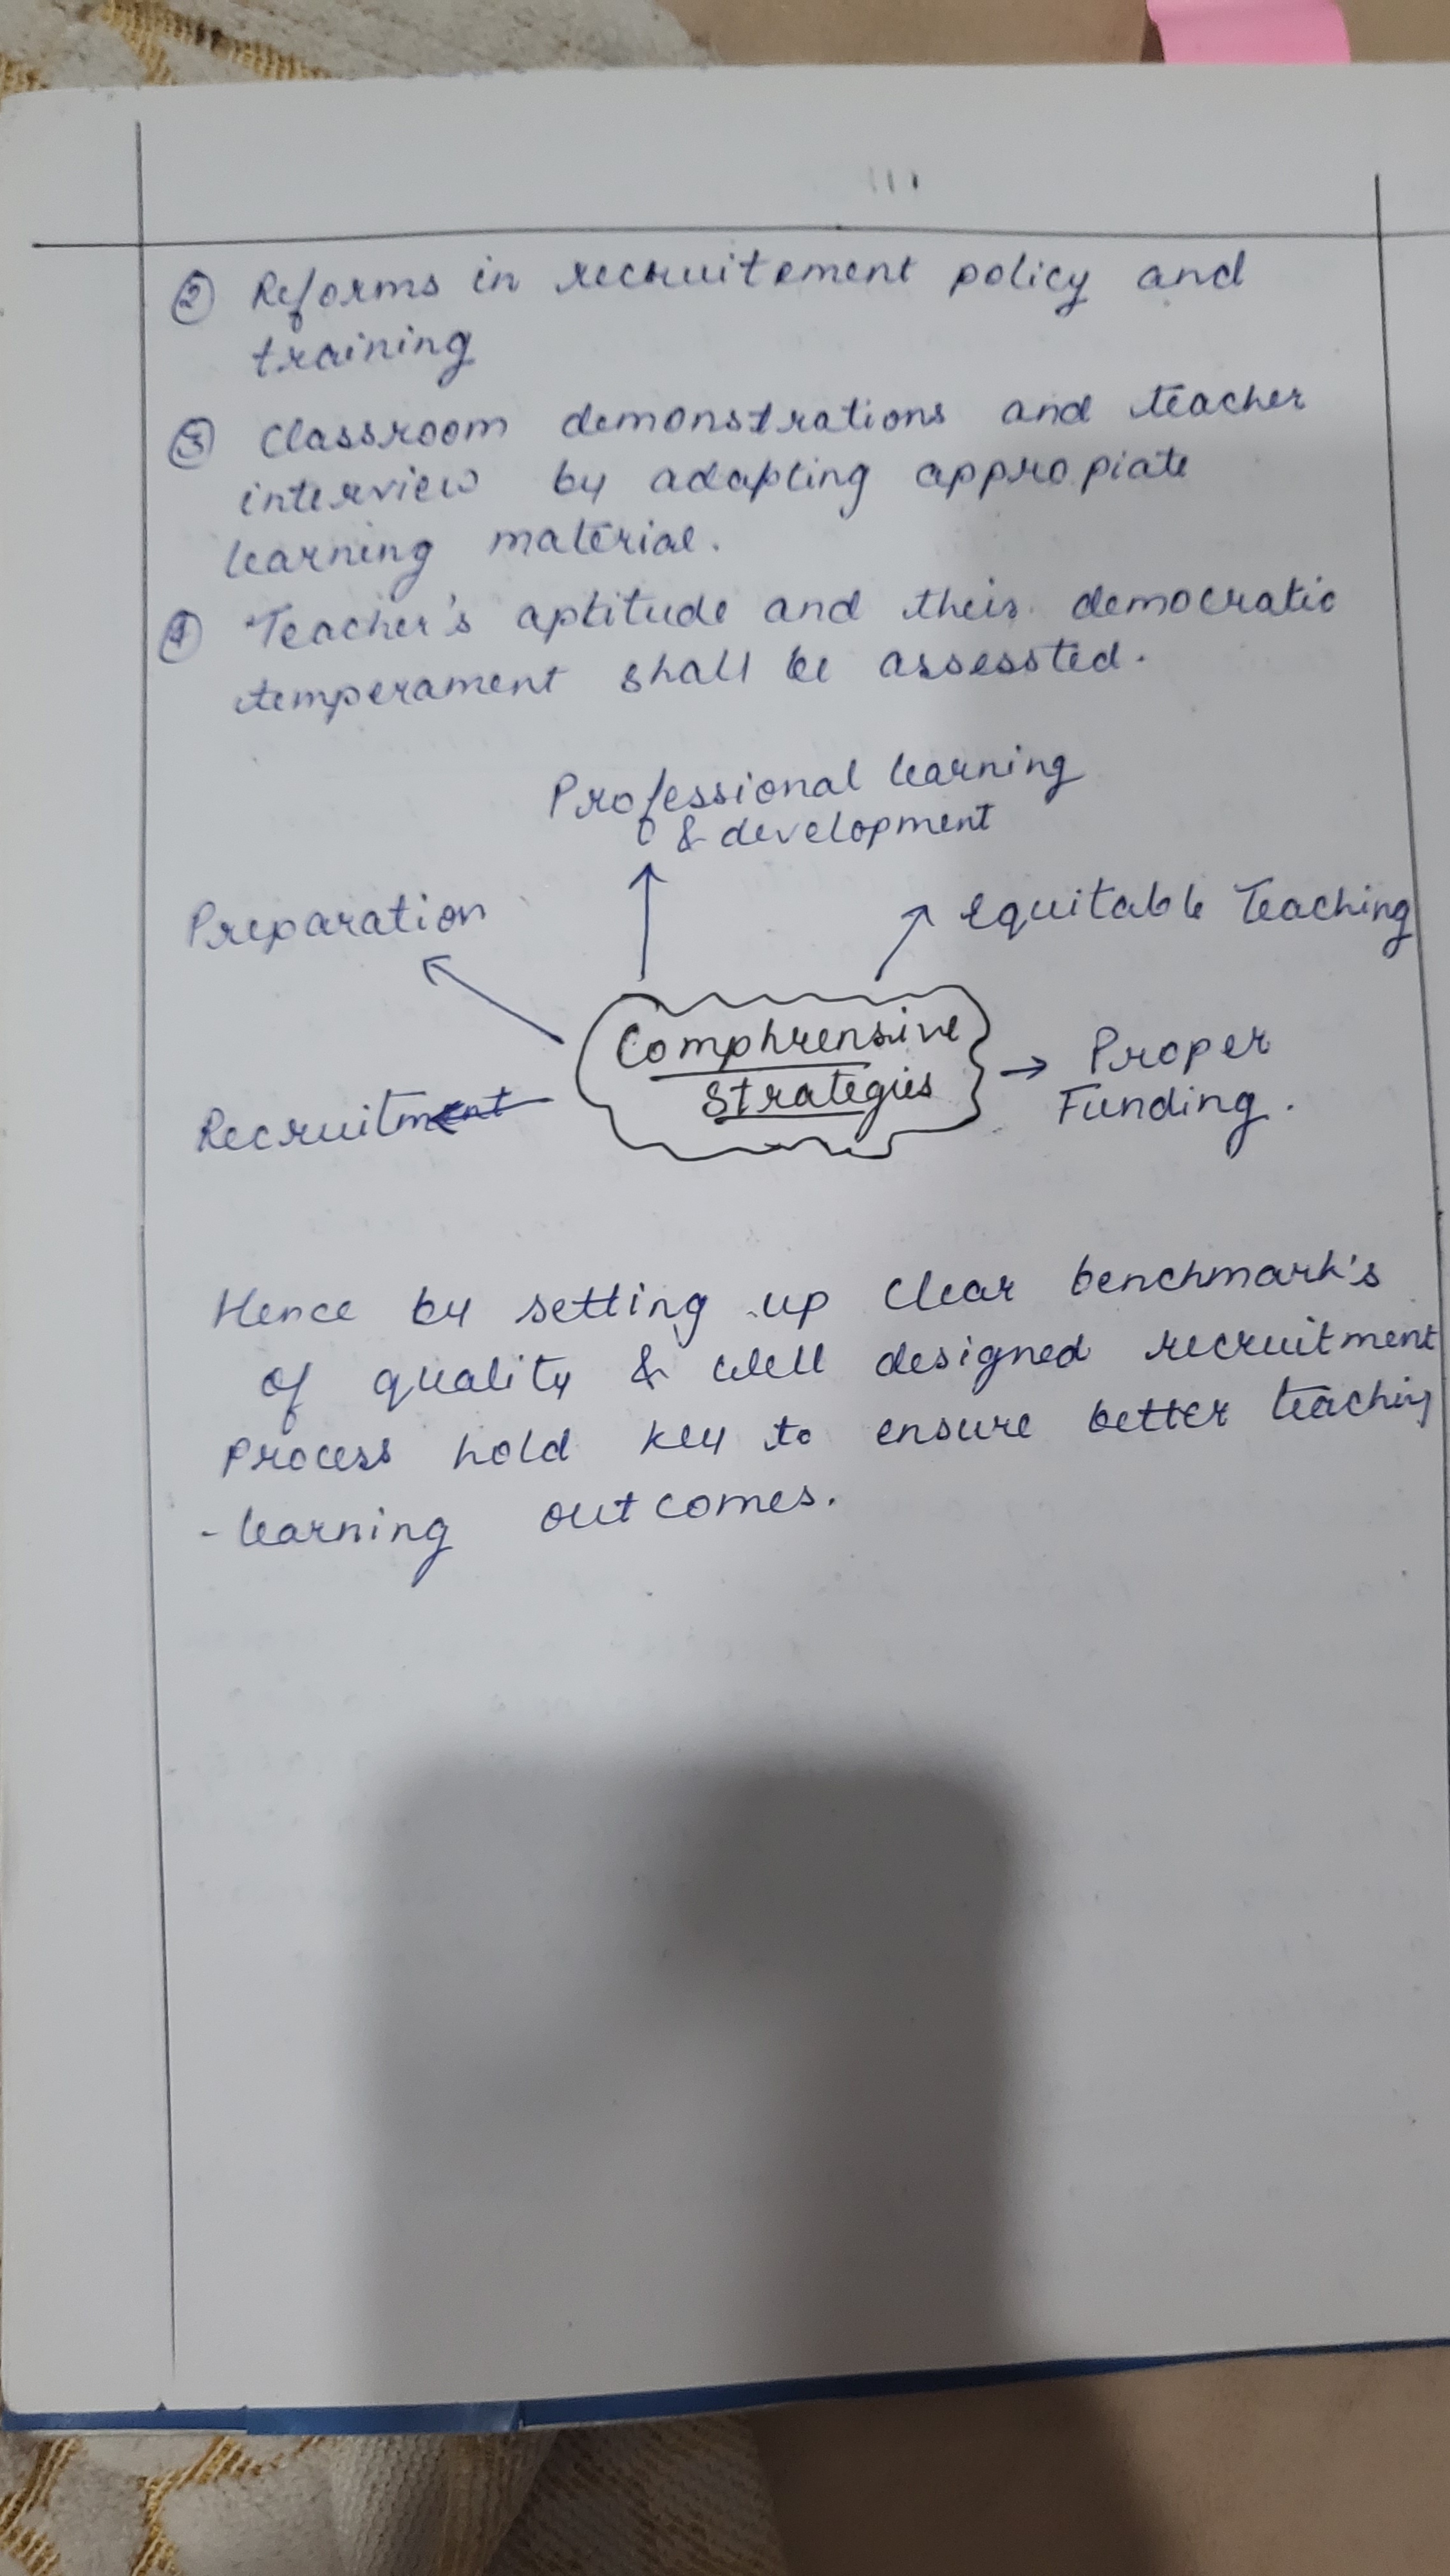 ② Reforms in recruitement policy and
training
③ Classroom demonstrations and teacher
interview by adapting appropiate
learning material.
④ Teacher's aptitude and their democratic
temperament shall be assessted.
Professional learning
& development
Preparation
equitable Teaching
Comphrensive
Strategies
Proper
Funding.
Recruitment
Hence by setting up clear benchmark's
of quality & well designed recruitment
process hold key to ensure better teaching
- learning outcomes.